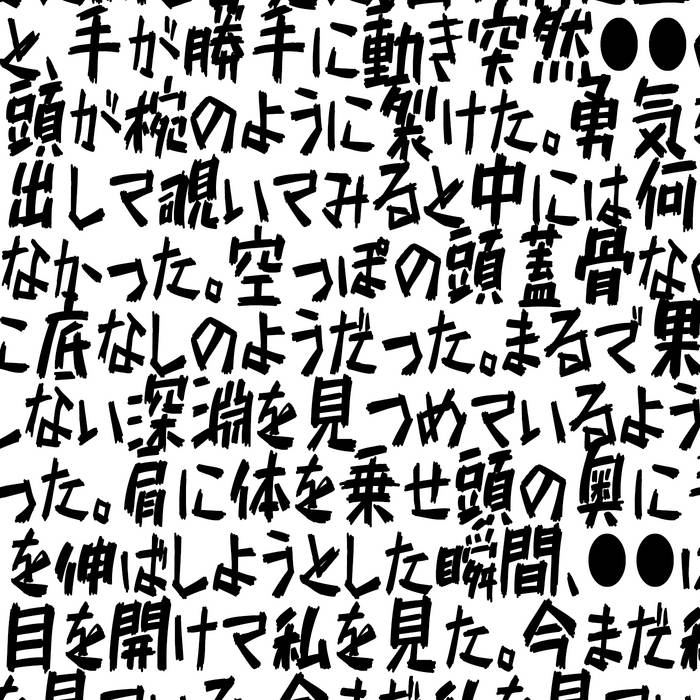 と、手が勝手に動き突然●●
頭が椀のように裂けた。勇気
出して覗いてみると中には何
なかった。空っぽの頭蓋骨な
に底なしのようだった。まるで果
しない深淵を見つめているよう
った。肩に体を乗せ頭の奥に
を伸ばしようとした瞬間、●●
目を開けて私を見た。今まだ